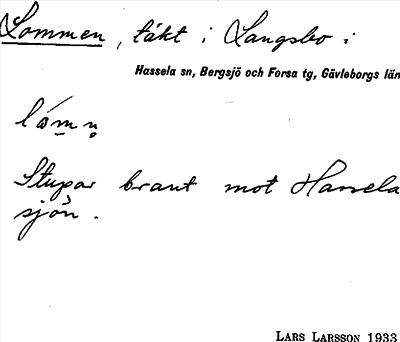 Lommen, täkt i Langsbo i
Hassela sn, Bergsjö och Forsa tg, Gävleborgs län
Stupar brant mot Hassela
sjön.
LARS LARSSON 1933